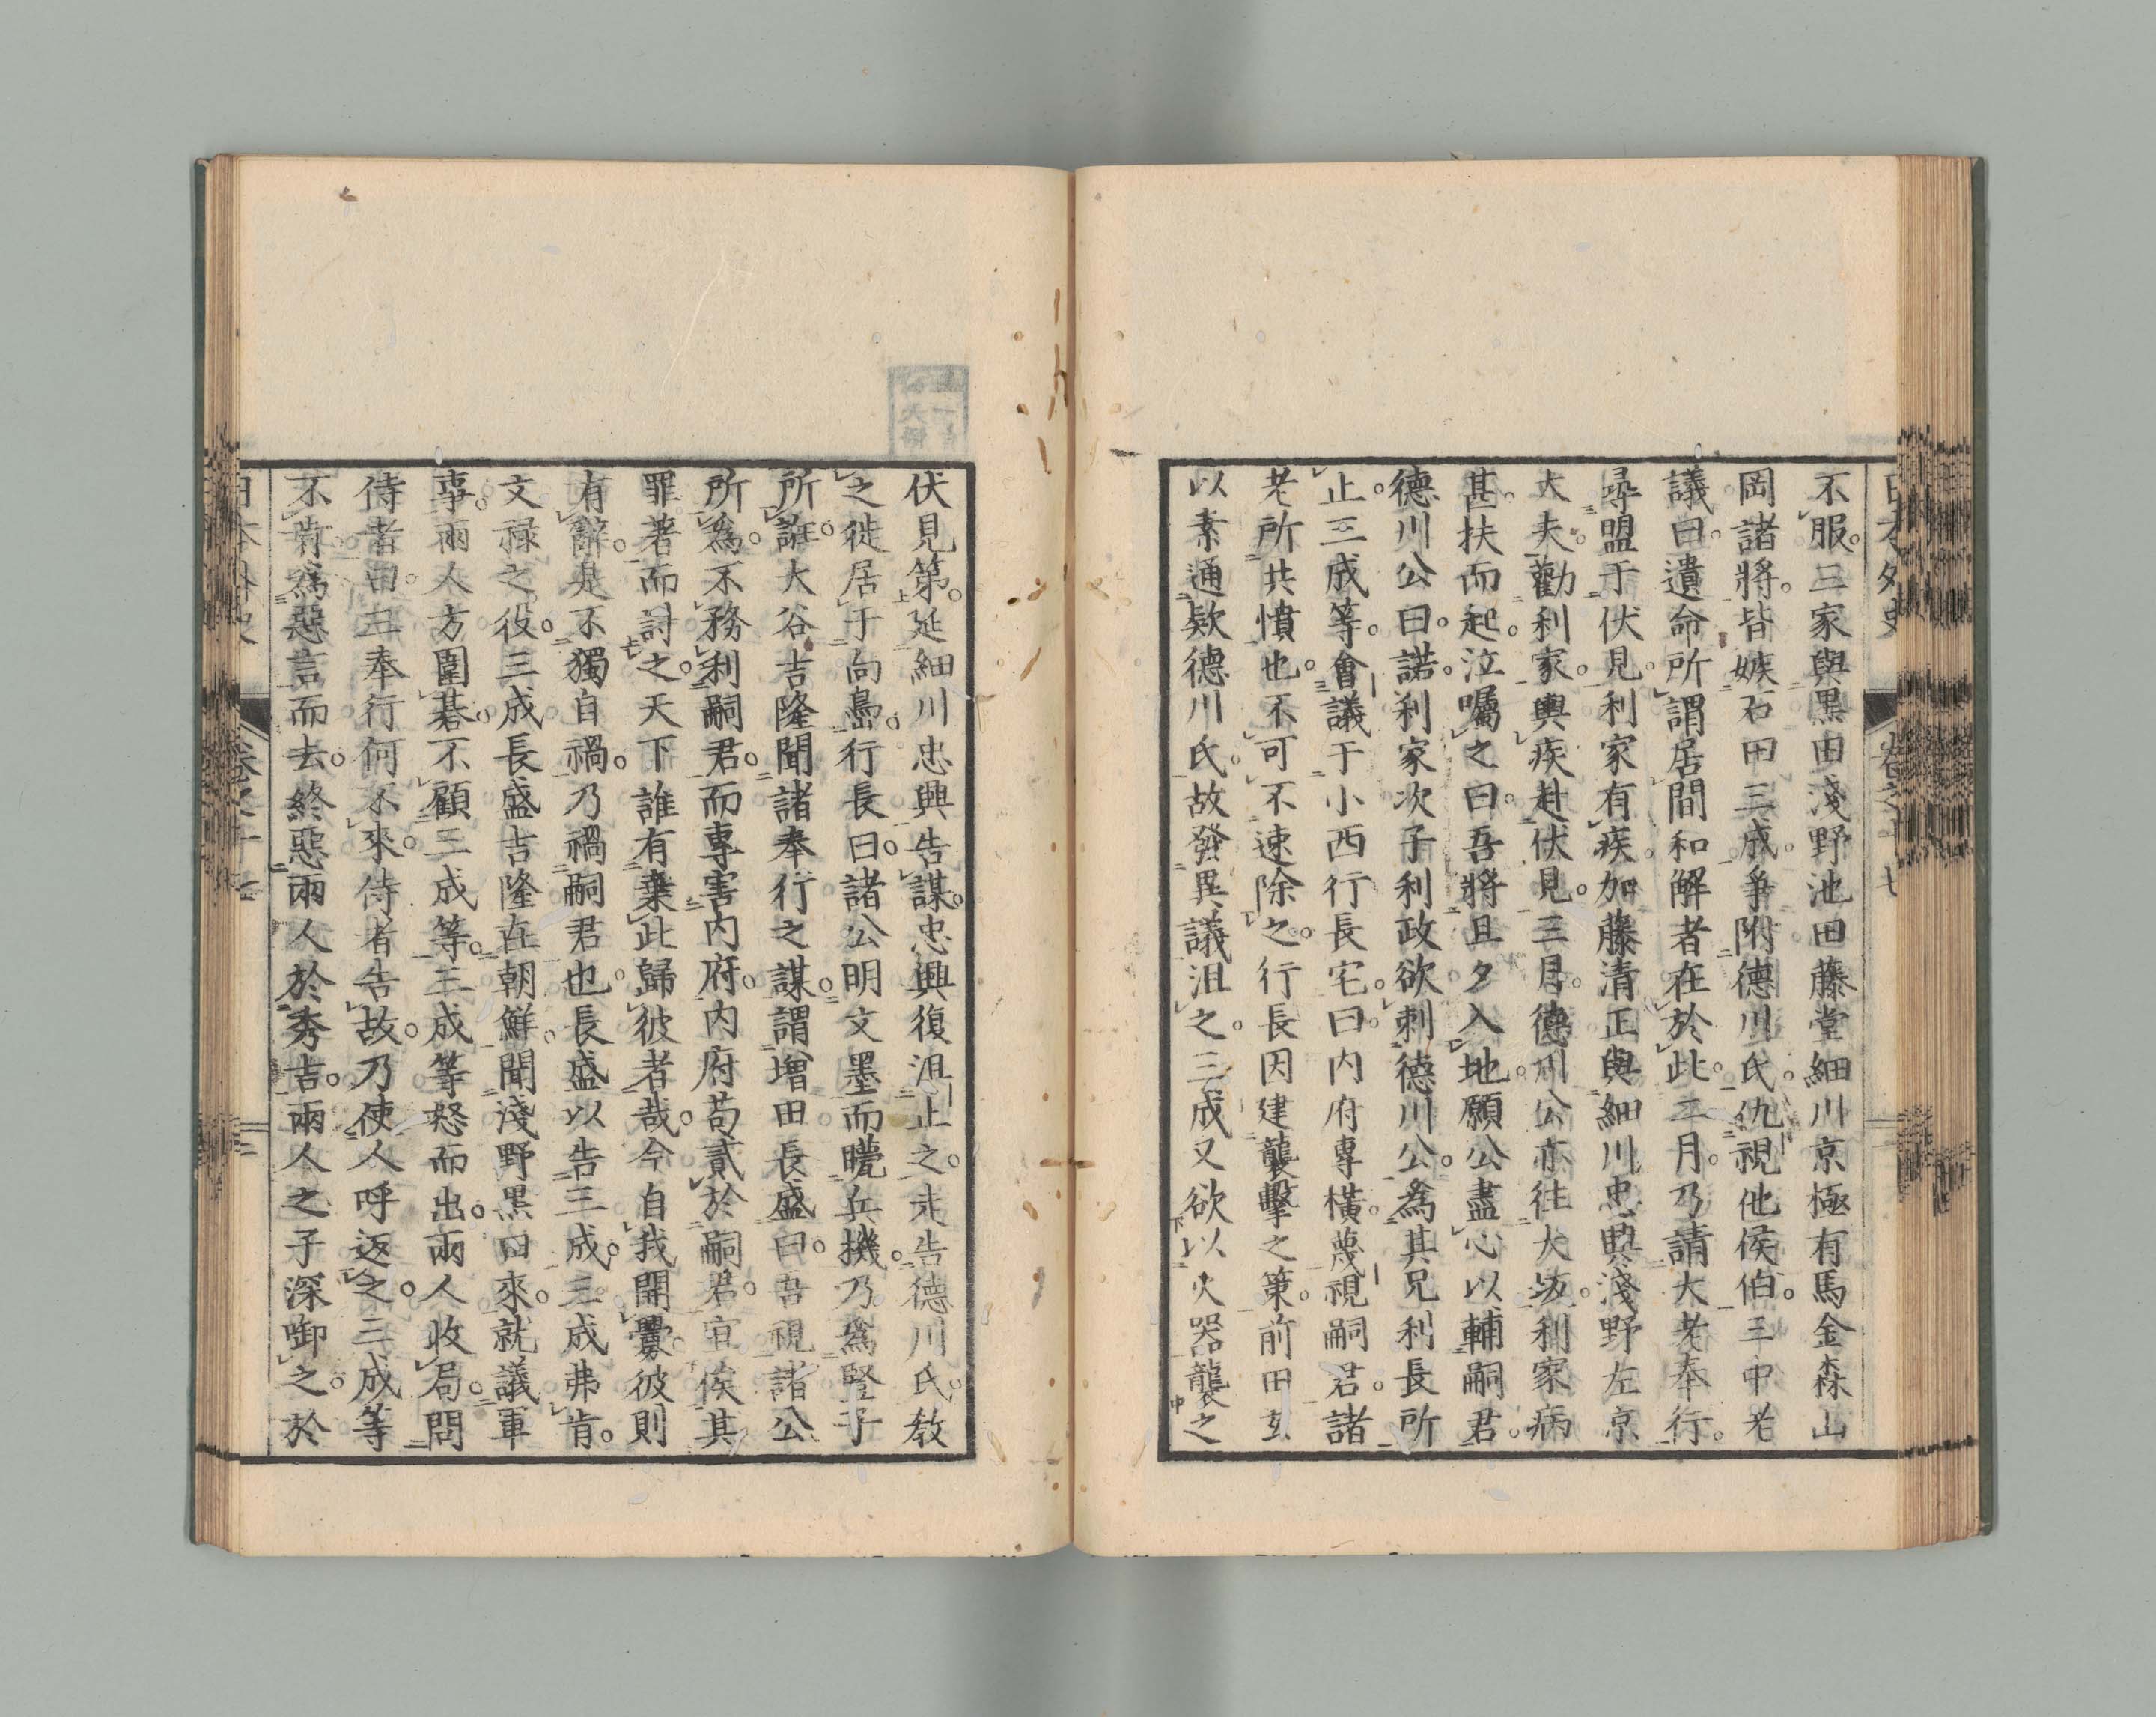 日本外史　卷之十七
不服。三家與黑田淺野池田藤堂細川京極有馬金森山
岡諸將。皆嫉石田三成爭附德川氏。仇視他侯伯。三中老
議曰。遺命所謂居間和解者在於此。二月。乃請大老奉行。
尋盟于伏見。利家有疾。加藤清正與細川忠興淺野左京
大夫。勸利家。輿疾赴伏見。三月。德川公亦往大坂。利家病
甚。扶而起。泣囑之曰。吾將旦夕入地。願公盡心以輔嗣君。
德川公曰。諾。利家次子利政欲刺德川公。爲其兄利長所
止。三成等。會議于小西行長宅。曰。內府專橫。蔑視嗣君。諸
老所共憤也。不可不速除之。行長因建襲擊之策。前田玄
以素通款德川氏。故發異議沮之。三成又欲以火器襲之
伏見第。延細川忠興告謀。忠興復沮止之。走告德川氏。教
之徙居于向島。行長曰。諸公明文墨而矇兵機。乃爲豎子
所誑。大谷吉隆聞諸奉行之謀。謂增田長盛曰。吾視諸公
所爲。不務利嗣君。而專害內府。內府苟貳於嗣君。宜俟其
罪著而討之。天下誰有棄此歸彼者哉。今自我開釁。彼則
有辭。是不獨自禍。乃禍嗣君也。長盛以告三成。三成弗肯。
文祿之役。三成長盛吉隆在朝鮮。聞淺野黑田來。就議軍
事。兩人方圍碁。不顧三成等。三成等怒而出。兩人收局。問
侍者。曰三奉行何不來。侍者告故。乃使人呼返之。三成等
不肯。爲惡言而去。終惡兩人於秀吉。兩人之子深啣之。於
日本外史　卷之十七